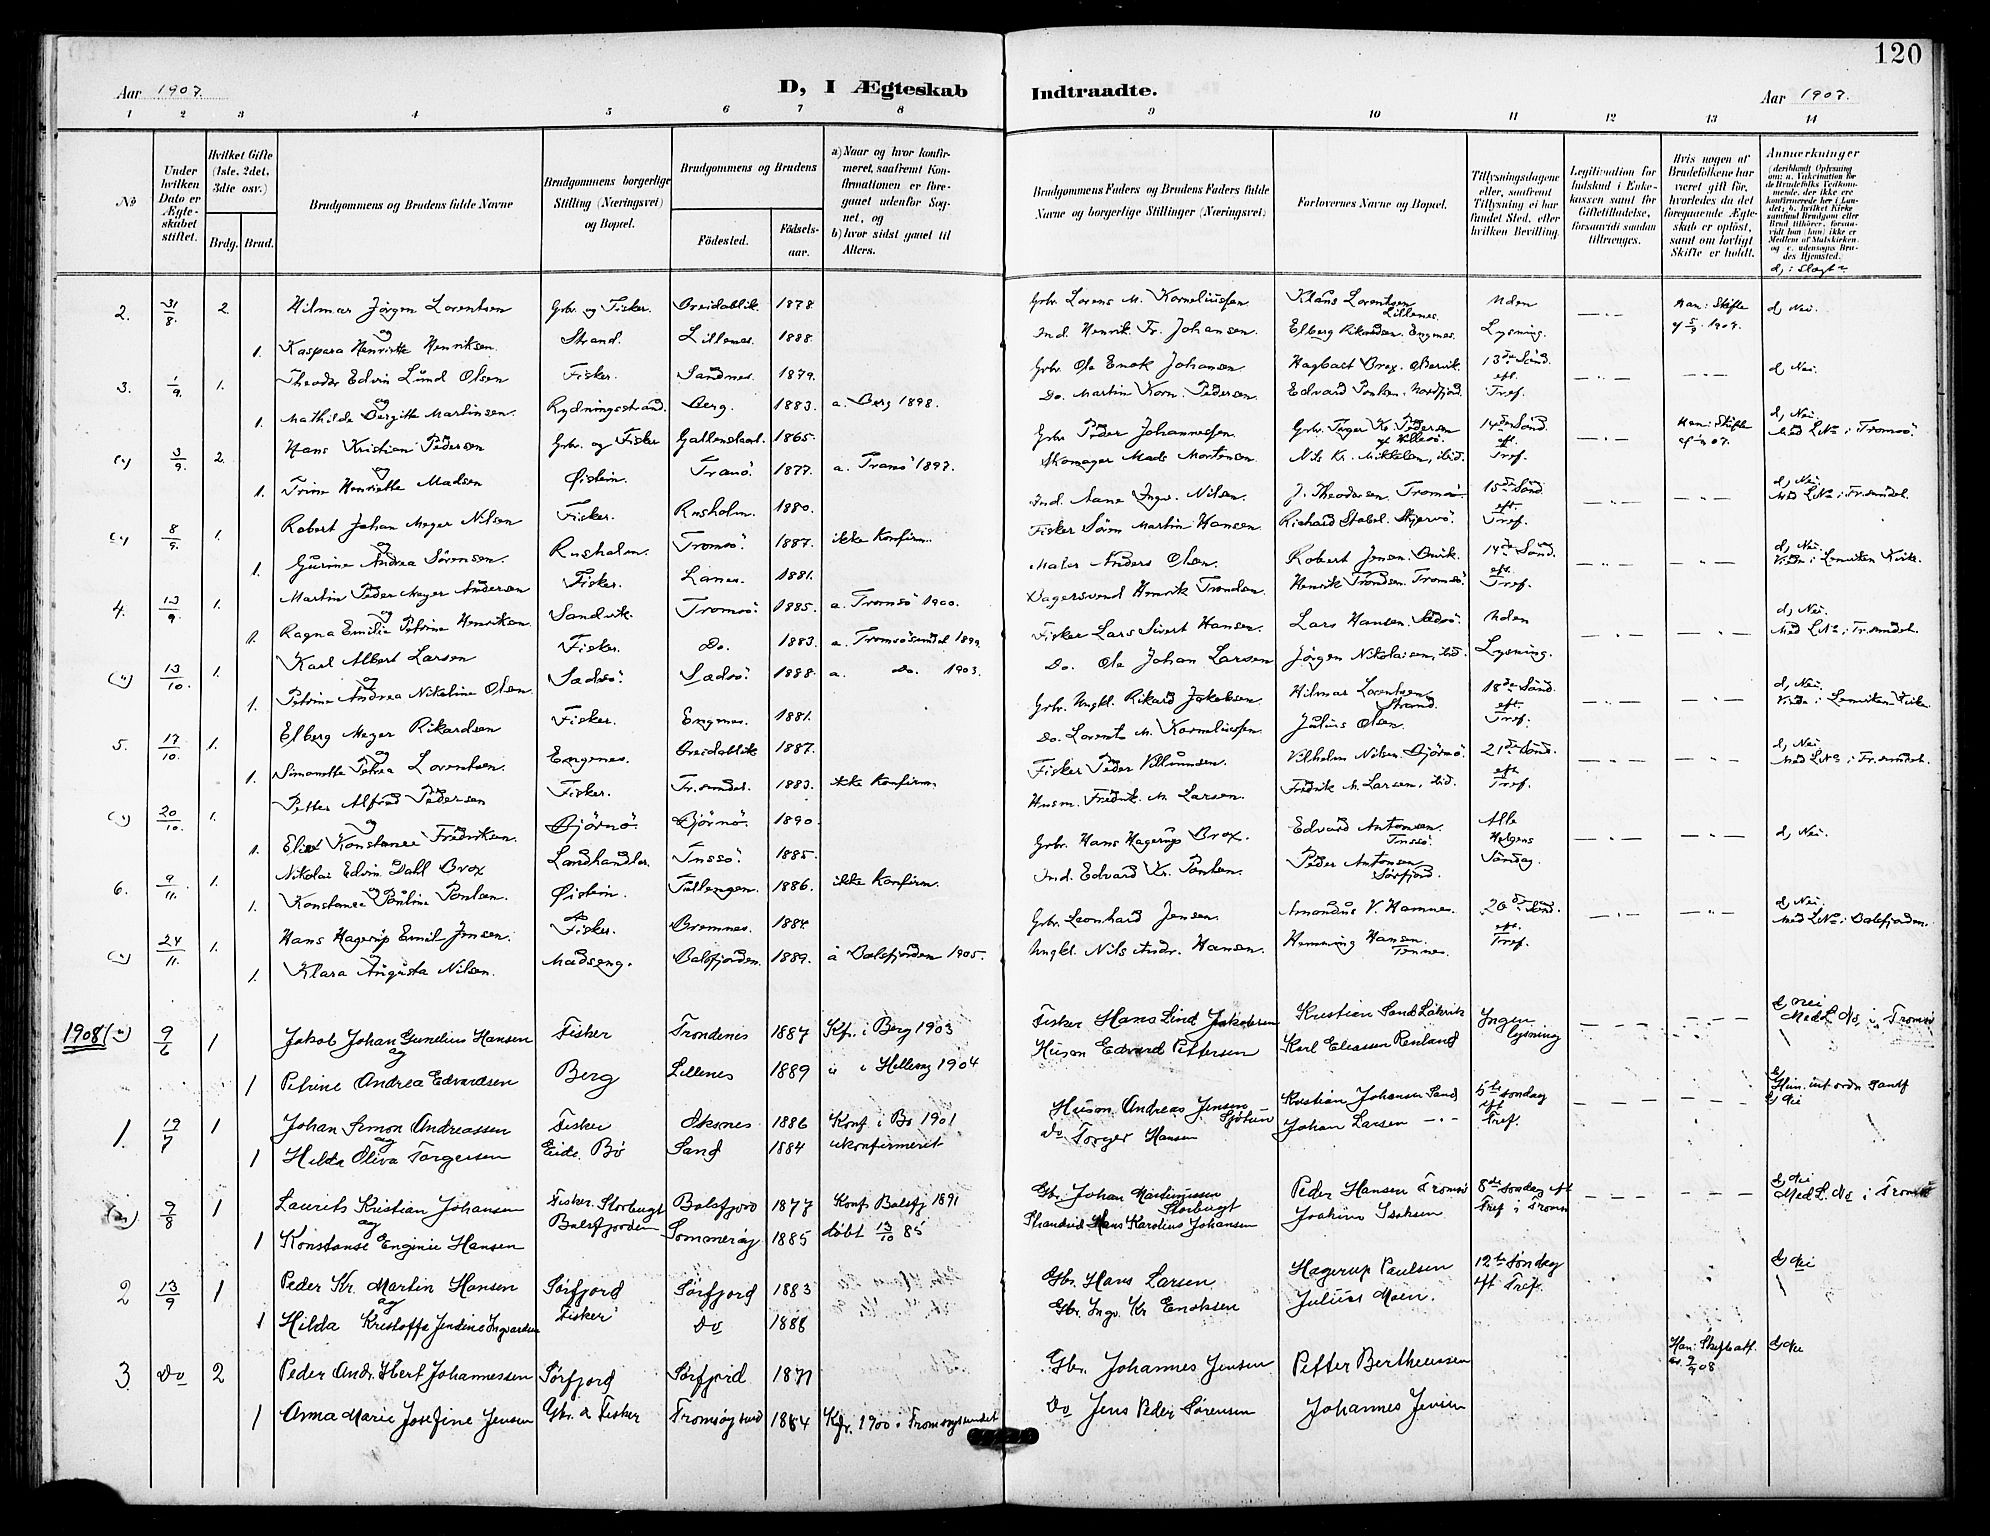 120
Aar 1907.
D, I Ægteskab Indtraadte.
Aar 1907.
1 2 3 4 5 6 7 8 9 10 11 12 13 14
No
Under hvilken Dato er Ægteskabet stiftet.
Hvilket Gifte (1ste, 2det, 3die osv.)
Brdg. Brud.
Brudgommens og Brudens fulde Navne
Brudgommens borgerlige Stilling (Næringsvei) og Bopæl.
Brudgommens og Brudens
Fødested.
Fødselsaar.
a) Naar og hvor konfirmeret, saafremt Konfirmationen er foregaaet udenfor Sognet, og
b) hvor sidst gaaet til Alters.
Brudgommens Faders og Brudens Faders fulde Navne og borgerlige Stillinger (Næringsvei)
Forlovernes Navne og Bopæl.
Tillysningsdagene eller, saafremt Tillysning ei har fundet Sted, efter hvilken Bevilling.
Legitimation for Indskud i Enkekassen samt for Giftetilladelse, forsaavidt saadan tiltrænges.
Hvis nogen af Brudefolkene har været gift før, hvorledes da det foregaaende Ægteskab er opløst, samt om lovligt Skifte er holdt.
Anmærkninger (deriblandt Oplysning om: a. Vakcination for de Brudefolks Vedkommende, der ikke ere konfirmerede her i Landet; b. hvilket Kirkesamfund Brudgom eller Brud tilhører, forsaavidt han (hun) ikke er Medlem af Statskirken og c. udensogns Brudes Hjemsted.
d, : Slægt
2. 31/8. 2. Hilmar Jørgen Lorentsen Grbr. og Fisker. Breidablik 1878 Grbr. Lorens M. Korneliussen Klaus Lorentsen Lillenes. Uden Han: Skifte d, Nei.
og 1. Kaspara Henriette Henriksen. Strand. Lillenes. 1888. Ind. Henrik Fr. Johansen. Elberg Rikardsen. Engenes. Lysning. 5/9. 1907.
3. 1/9. 1. Theodor Edvin Lund Olsen Fisker. Sandnes. 1879. Grbr. Ole Enok Johansen Hagbart Brox. 13de Sønd. d, Nei.
og 1. Mathilde Bergitte Martinsen. Rydningsstrand. Berg. 1883. a. Berg 1898. Do. Martin Korn. Pedersen Edvard Poulsen. Nordfjord. eft. Tref.
(") 3/9. 2. Hans Kristian Pedersen Grbr. og Fisker 1865. Grbr. Peder Johannessen. Grbr. Kr. Pedersen 14de Sønd. Han: Skifte d, Nei.
og 1. Trine Henriette Madsen Øistein. Tranø 1877. a. Tranø 1897. Skomager Mads Mortensen Nils Kr. Mikkelsen, ibid. eft. Tref. Med L. No i Tromsø.
(") 8/9. 1. Robert Johan Meyer Nilsen Fisker. Rusholm. 1880. Ind. Aane Ingv. Nilsen. J. Theodorsen. Tromsø 15de Sønd. d, Nei.
og 1. Gurine Andrea Sørensen. Rusholm. Tromsø. 1887. ikke konfirm. Fisker Søren Martin Hansen Richard Stabel. Skjervø. eft. Tref. Med L. No i Tr.sundet.
4. 13/9. 1. Martin Peder Meyer Andersen Fisker. Lanes. 1881. Maler Anders Olsen. Robert Jensen. 14de Sønd. d, Nei.
og 1. Ragna Emilie Petrine Henriksen Sandvik. Tromsø. 1885. a. Tromsø 1900. Henrik Trondsen Henrik Trondsen. Tromsø. eft. Tref. Viede i Lenviken Kirke.
(") 13/10. 1. Karl Albert Larsen Fisker. Do. 1883. a. Tromsøsundet 1899. Fisker Lars Sivert Hansen. Lars Hansen. Sædsø. Uden d, Nei.
og 1. Petrine Andrea Nikoline Olsen. Sædsø. Sædsø. 1888. a. Do. 1903. Do. Ole Johan Larsen Jørgen Nikolaisen, ibid. Lysning. Med L. No i Tr.sundet.
5. 17/10. 1. Elberg Meyer Rikardsen Fisker. Engenes. 1881. Grbr. Ungkl. Rikard Jakobsen. Hilmar Lorentsen Strand. 18de Sønd. d, Nei.
og 1. Simonette Petrea Lorentsen. Engenes. Breidablik 1887. Do. Lorents M. Korneliussen Julius Olsen. eft. Tref. Viede i Lenviken Kirke.
(") 20/10. 1. Petter Alfred Pedersen Fisker. Tr.sundet. 1883. ikke konfirm. Fisker Peder Villumsen. Vilhelm Nilsen. Bjørnø. 21de Sønd. d, Nei.
og 1. Elise Konstance Fredriksen. Bjørnø. Bjørnø. 1890. Husm. Fredrik M. Larsen. Fredrik M. Larsen, ibid. eft. Tref. Med L. No i Tr.sundet.
6. 9/11. 1. Nikolai Edvin Dahl Brox Landhandler. Tussø. 1885. Grbr. Hans Hagerup Brox. Edvard Antonsen. Tussø. Alle Helgens Søndag. d, Nei.
og 1. Konstance Pauline Poulsen. Øistein. 1886. ikke konfirm. Ind. Edvard Kr. Poulsen. Peder Antonsen Sørfjord.
(") 24/11. 1. Hans Hagerup Emil Jensen. Fisker. Bremnes. 1884. Grbr. Leonhard Jensen. Amandus V. Hamnes. 26de Sønd. d, Nei.
og 1. Klara Augusta Nilsen. Madseng. Balsfjorden. 1889. a Balsfjorden 1905. Ungkl. Nils Andr. Hansen. Hemming Hansen. Tennes. eft. Tref. Med L. No i Balsfjorden.
1908 (") 9/6 1 Jakob Johan Gunelius Hansen Fisker Trondenes 1887 Kf. i Berg 1903 Fisker Hans Lind Jakobsen Kristian Sand Ingen lysning d, Nei Med L. No i Tromsø
og 1 Petrine Andrea Edvardsen Berg Lillenes 1889 " i Hillesøy 1904 Husm Edvard Pettersen Karl Eliassen Renland
1. 19/7 1 Johan Simon Andreassen Fisker Øksnes 1886 Konf. i Bø 1901 Husm Andreas Jensen Kristian Johansen Sand 5te søndag eft Tref. d, Nei
og 1 Hilda Oliva Torgersen Eide. Bø Sand 1884 ukonfirmeret Do Torger Hansen Johan Larsen
(") 9/8 1 Laurits Kristian Johansen Fisker. Storbugt Balsfjord 1877 Konf. Balsfj 1891 Gbr. Johan Martinussen Storbugt Peder Hansen Tromsø 8de søndag eft Tref i Tromsø d, Nei Med L. No i Tromsø
og 1 Konstanse Enginie Hansen Balsfjorden Sommerøy 1885 døbt 13/10 85 Strandsid Hans Karolius Johansen Joakim Isaksen
2 13/9 1 Peder Kr. Martin Hansen Sørfjord Sørfjord 1883 Gbr. Hans Larsen Hagerup Paulsen 12te søndag eft Tref. d, Nei
og 1 Hilda Kristoffa Jensine Ingvardsen Fisker Do 1888 Gbr. Ingv. Kr Enoksen Julius Moen.
3. Do 2 Peder Andr. Hbert Johannessen Sørfjord Sørfjord 1871 Gbr. Johannes Jensen Petter Bertheussen Han: Skifteatt. 9/9 08 d, Nei
1 Anna Marie Josefine Jensen Gbr. & Fisker Tromsøysund 1884 Kfr. 1900 i Tromsøysundet Do Jens Peder Sørensen Johannes Jensen